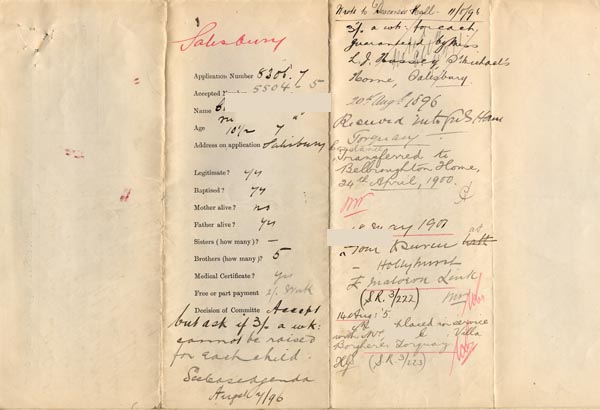 Salisbury
Application Number 8306.7
Accepted Number 5504 - 5
Name
Age 10½ 7
Address on application Salisbury
Legitimate? Yes
Baptised? Yes
Mother alive? no
Father alive? Yes
Sisters (how many)? –
Brothers (how many)? 5
Medical Certificate? Yes
Free or part payment 2/. Week
Decision of Committee Accept
but ask if 3/. a wk:
cannot be raised
for each child.
See Case agenda
Augst 4/96
Wrote to Deaconess Hall - 11/8/96
3/. a wk: for each,
guaranteed by Miss
L.J. Hussey, St Michael's
Home, Salisbury
20th Augt 1896
Received into for G Home
Torquay
Transferred to
Belbroughton Home,
24th April, 1900.
1901
at
Hollyhurst
Link
(S.R. 3/222)
14 Aug: 5
placed in service
with Mr. Villa
Borghese Torquay
(S.R. 3/223)